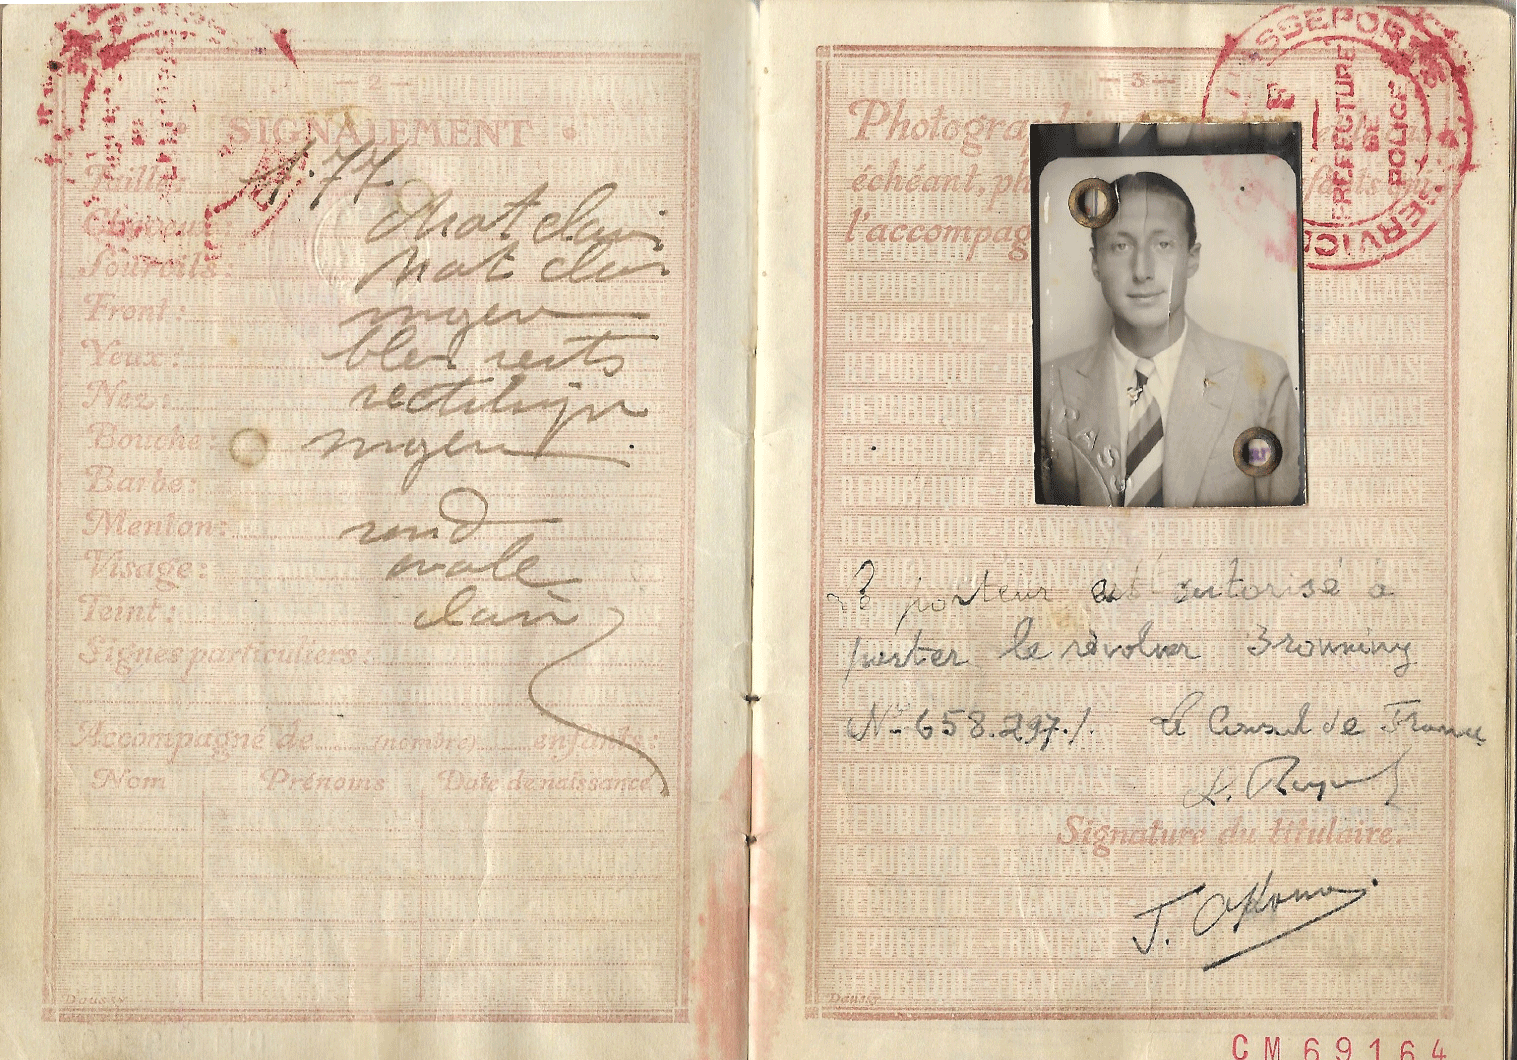 — 2 —
SIGNALEMENT
Taille: 1.77.
Cheveux: chat clair
Sourcils: chat clair
Front: moyen
Yeux: bleu verts
Nez: rectiligne
Bouche: moyen
Barbe:
Menton: rond
Visage: ovale
Teint: clair
Signes particuliers:
Accompagné de (nombre) enfants:
Nom Prénoms Date de naissance
Daussy
— 3 —
PASSEPORTS
PREFECTURE
DE
POLICE
SERVICE
échéant,
l'accompag
RÉPUBLIQUE FRANÇAISE
Le porteur est autorisé à
porter le révolver Browning
No 658.297./. Le Consul de France
Signature du titulaire.
Daussy
CM69164